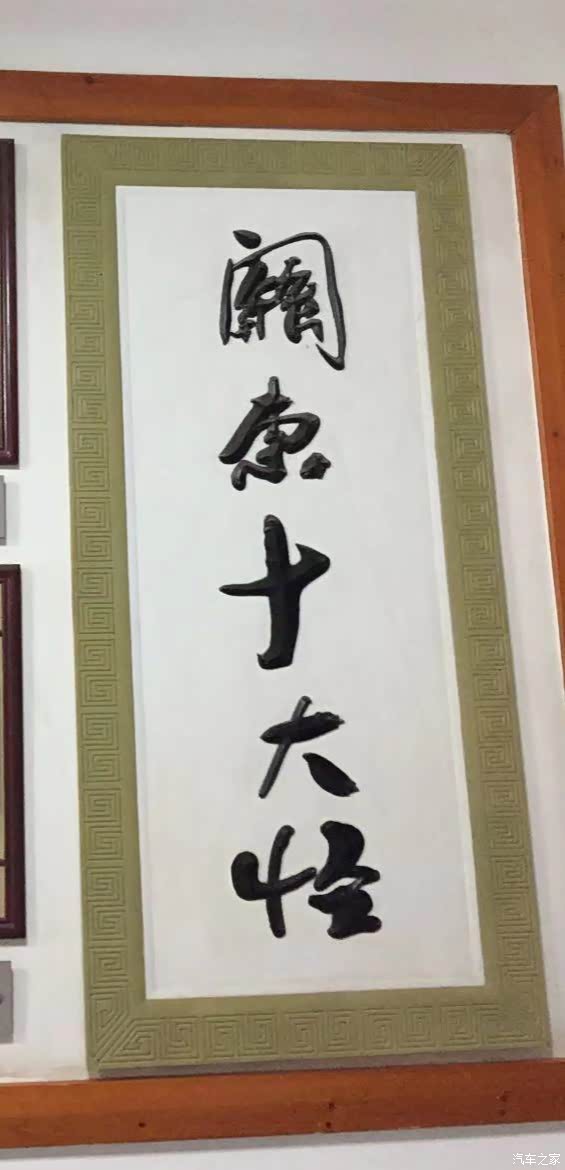 關东十大怪
汽车之家